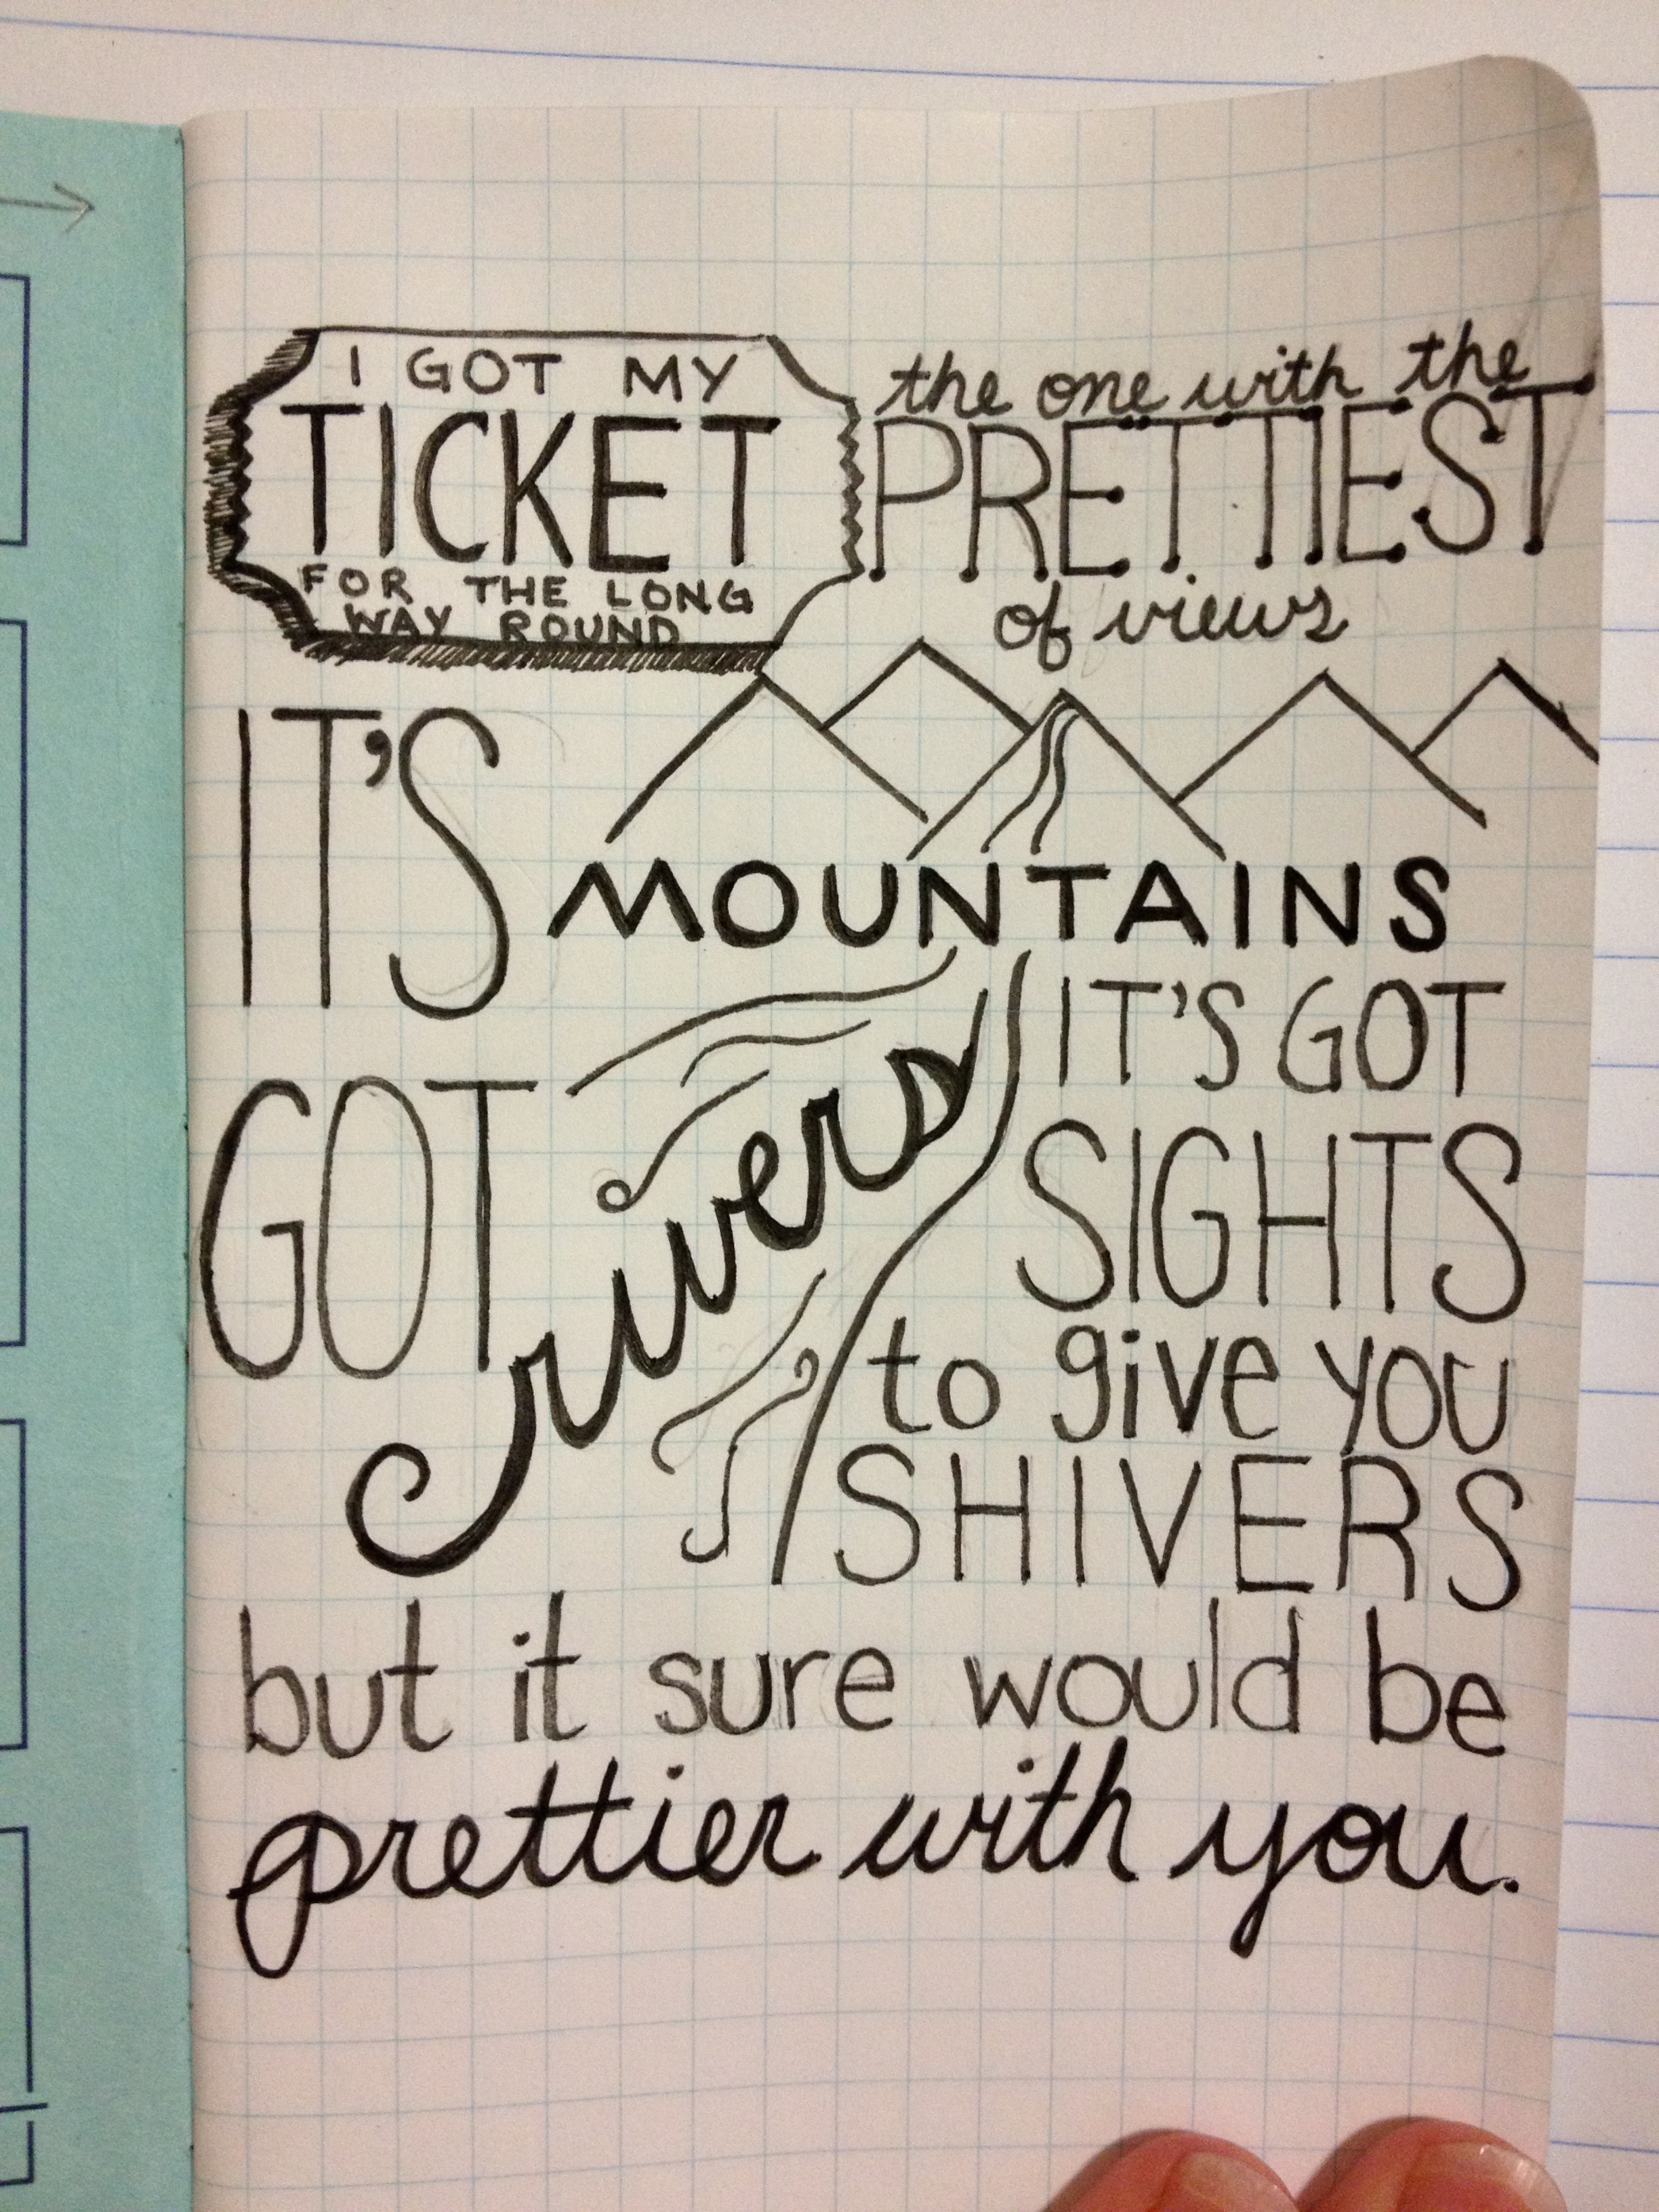 I GOT MY
TICKET
FOR THE LONG
WAY ROUND
the one with the
PRETTIEST
of views
IT'S
MOUNTAINS
GOT
rivers
IT'S GOT
SIGHTS
to give you
SHIVERS
but it sure would be
prettier with you.